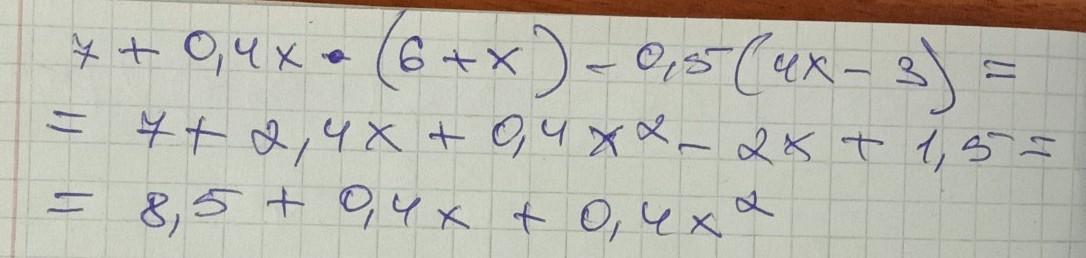 7 + 0,4x • (6 + x) - 0,5(4x - 3) =
= 7 + 2,4x + 0,4x² - 2x + 1,5 =
= 8,5 + 0,4x + 0,4x²